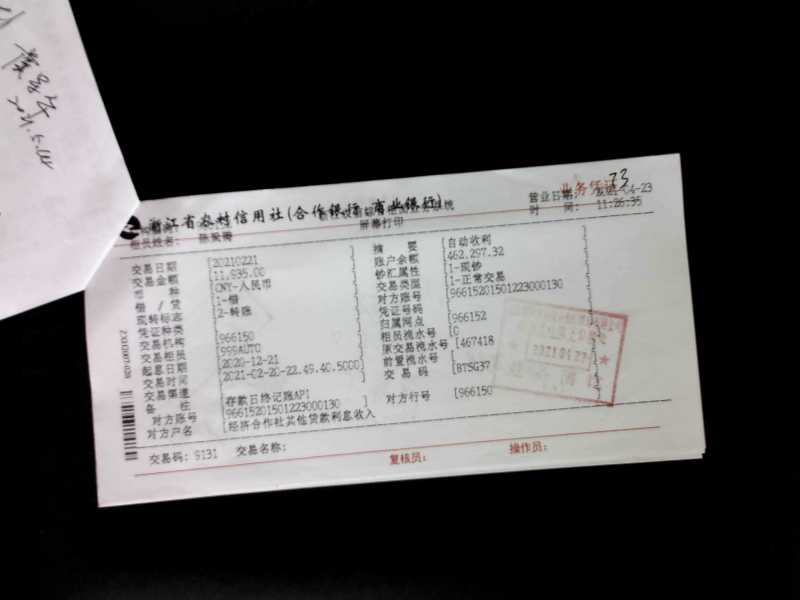 2021.5.
业务凭证
73
浙江省农村信用社(合作银行、商业银行)
屏幕打印
营业日期: 2021-04-23
柜员姓名:
时 间: 11:26:35
交易日期 [20210221 ]
摘 要 [自动收利 ]
交易金额 [11,935.00 ]
账户余额 [462,297.32 ]
币 种 [CNY-人民币 ]
钞汇属性 [1-现钞 ]
借 / 贷 [1-借 ]
交易类型 [1-正常交易 ]
现转标志 [2-转账 ]
对方账号 [966152015012230001​30 ]
凭证种类 [ ]
凭证号码 [ ]
交易机构 [966150 ]
归属网点 [966152 ]
交易柜员 [999AUTO ]
柜员流水号 [0 ]
起息日期 [2020-12-21 ]
原交易流水号 [467418 ]
交易时间 [2021-02-20-22.49.40.5000]
前置流水号 [ ]
交易渠道 [ ]
交 易 码 [BTSG37 ]
备 注 [存款日终记账API ]
对方账号 [96615201501223000130 ]
对方行号 [966150 ]
对方户名 [经济合作社其他贷款利息收入 ]
20210423
交易码: 9131 交易名称:
复核员: 操作员: